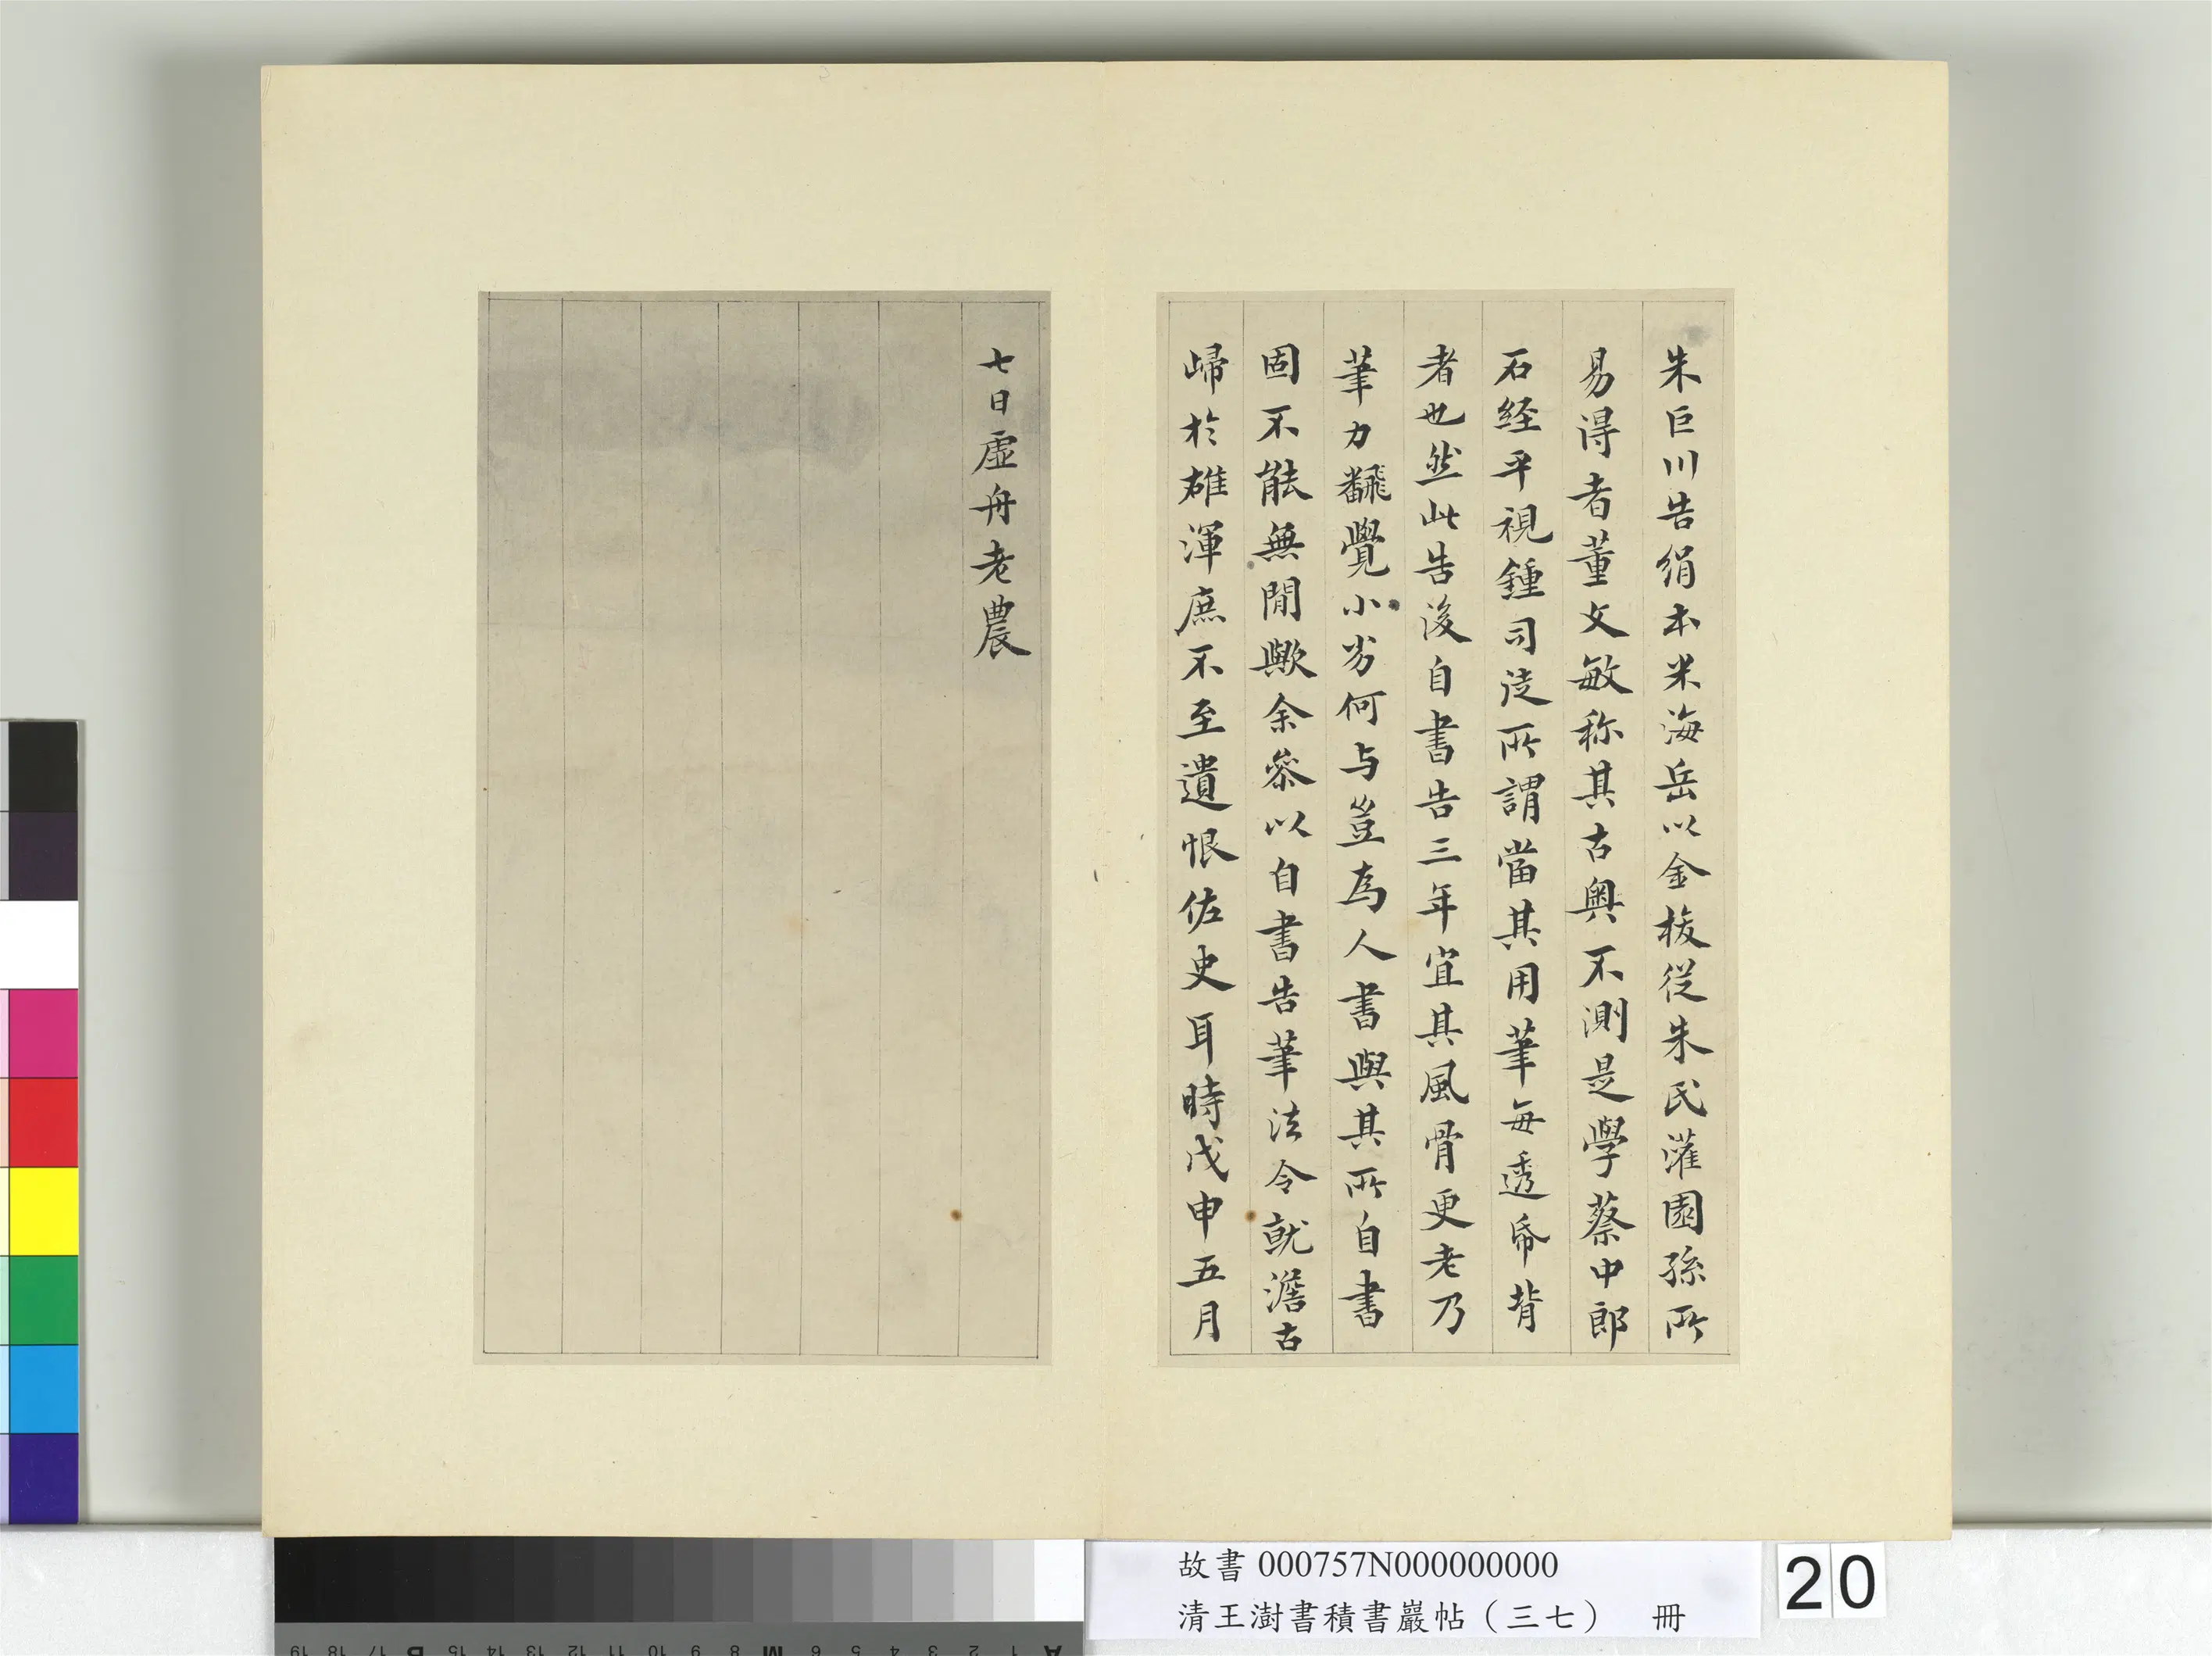 朱巨川告絹本米海岳以金梭從朱氏灌園孫所
易得者董文敏称其古奧不測是學蔡中郎
石经平視鍾司徒所謂當其用筆每透帋背
者也然此告後自書告三年宜其風骨更老乃
筆力飜覺小劣何与豈為人書與其所自書
固不能無閒歟余叅以自書告筆法令就澹古
歸於雄渾庶不至遺恨佐史耳時戊申五月
七日虛舟老農
故書 000757N000000000
清王澍書積書巖帖（三七） 冊
20
A 1 2 3 4 5 6 7 M 8 9 10 11 12 13 14 15 B 17 18 19